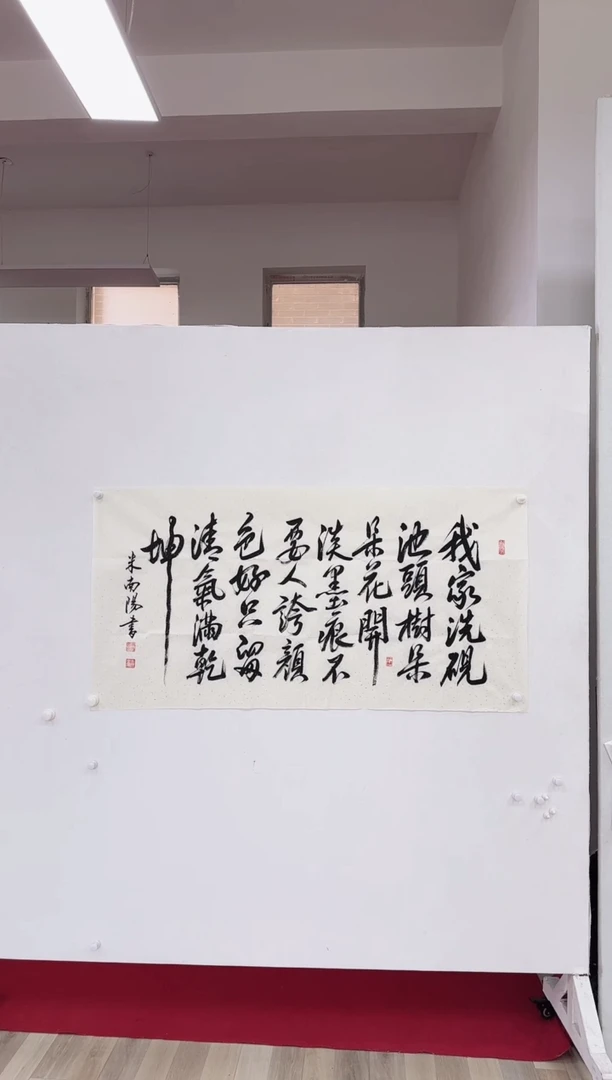 我家洗砚
池頭樹朵
朵花開
淡墨痕不
要人誇顔
色好只留
清氣滿乾
坤
米南陽書